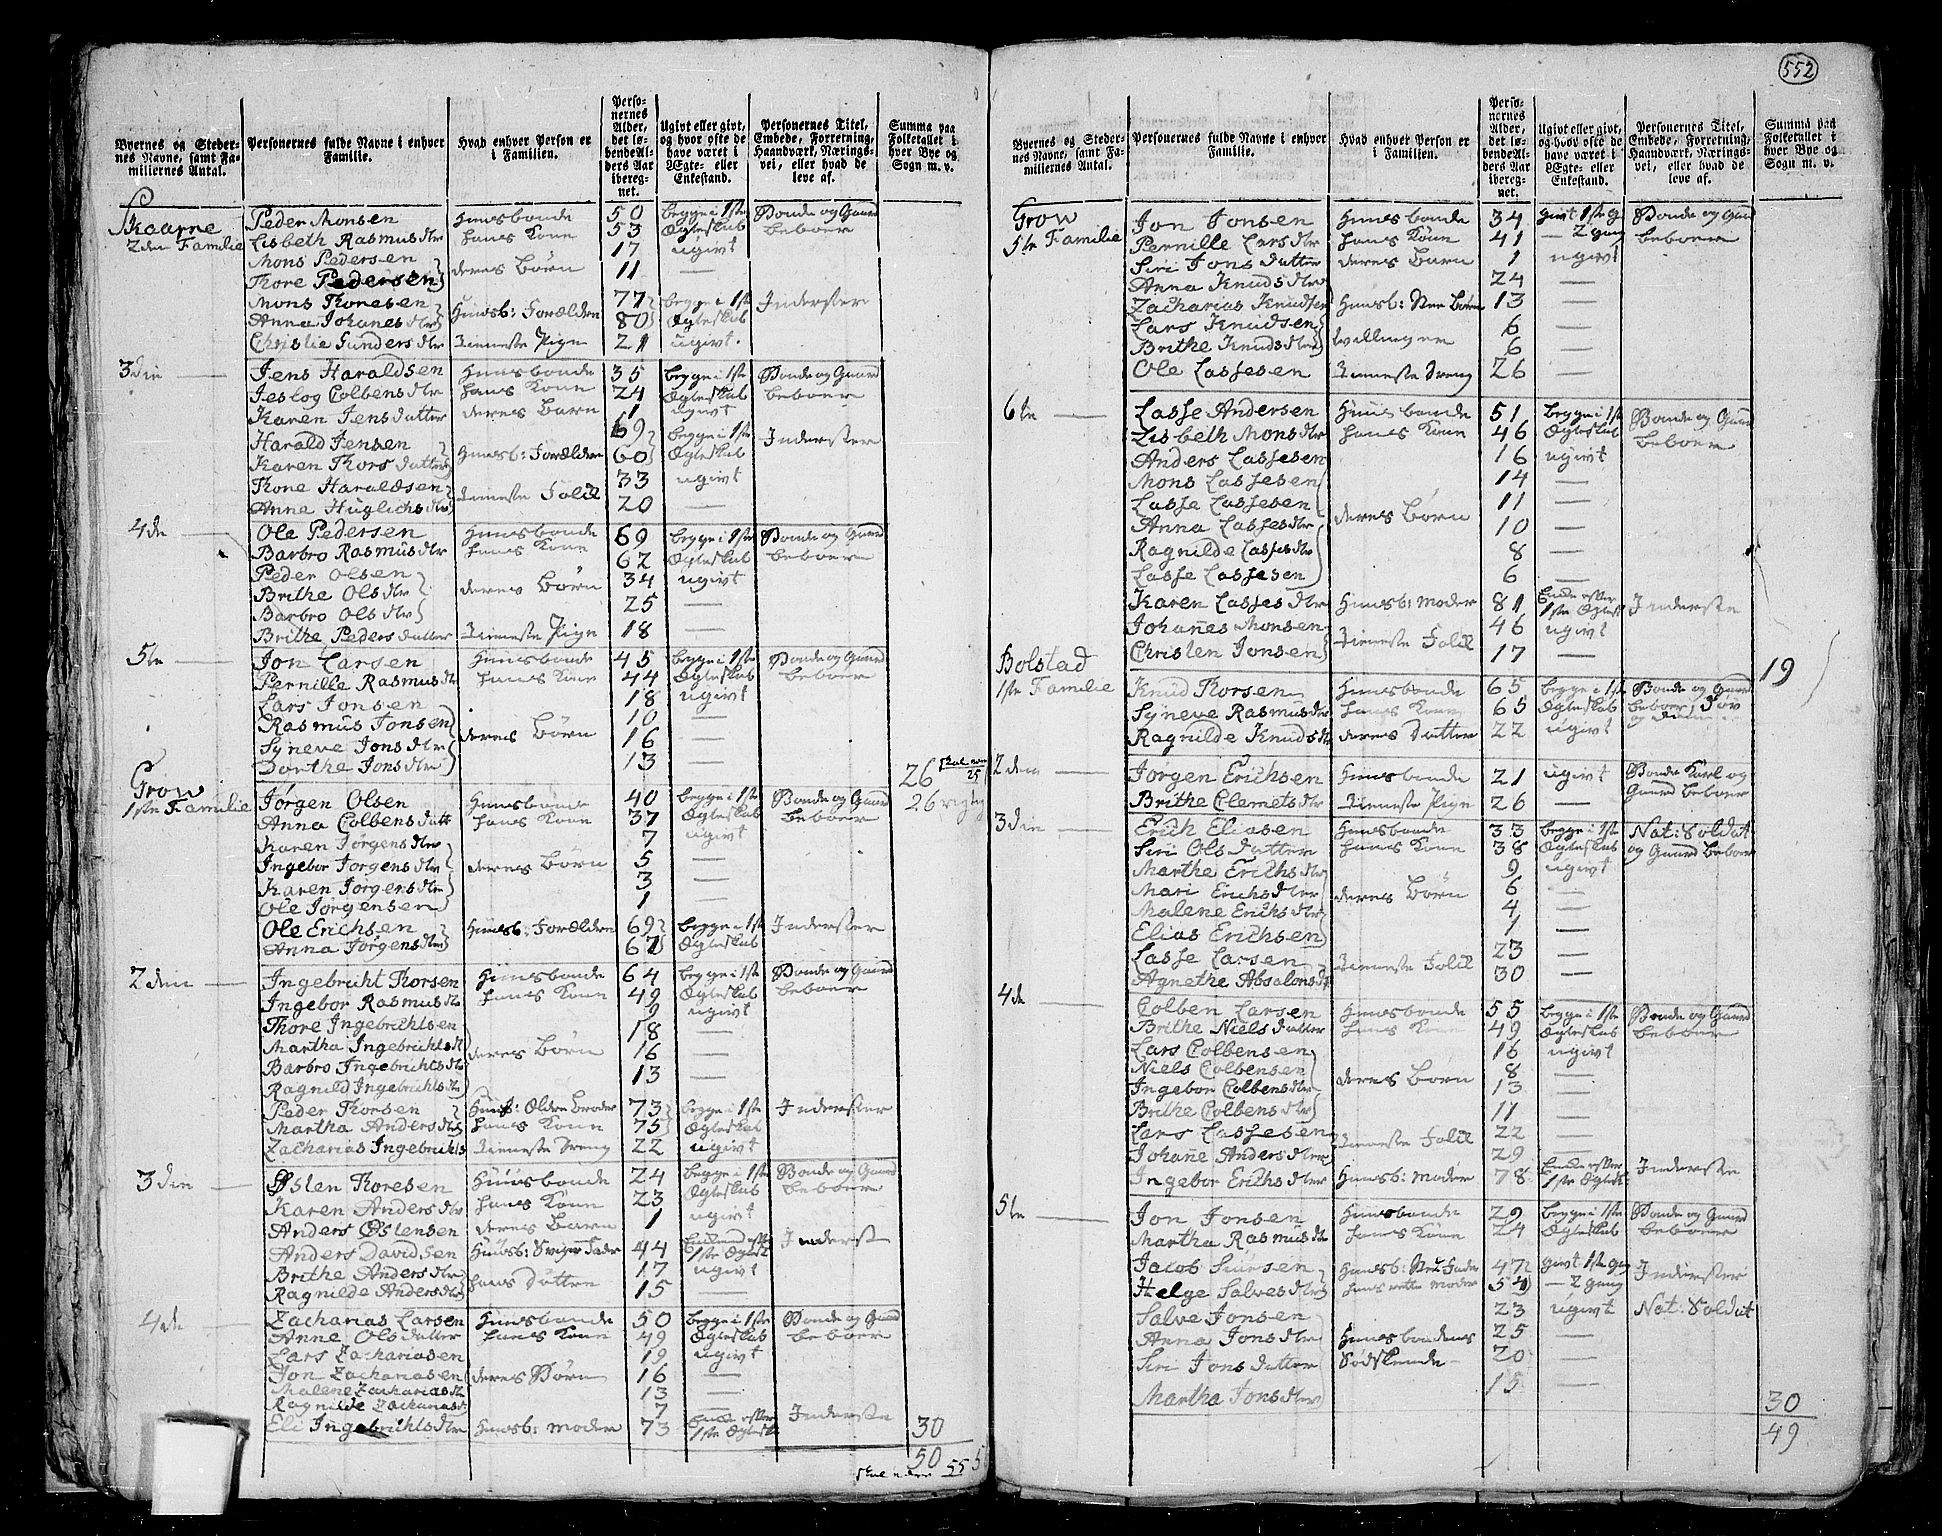 552
Byernes og Stedernes Navne, samt Familiernes Antal.
Personernes fulde Navne i enhver Familie.
Hvad enhver Person er i Familien.
Personernes Alder, det løbende Alders Aar iberegnet.
Ugivt eller givt, og hvor ofte de have været i Ægte- eller Enkestand.
Personernes Titel, Embede, Forretning, Haandværk, Næringsvei, eller hvad de leve af.
Summa paa Folketallet i hver Bye og Sogn m. v.
Skaarne
2den Familie
Peder Monsen Huusbonde 50 begge i 1ste Bonde og Gaard
Lisbeth Rasmus dtr hans Kone 53 Ægteskab beboer
Mons Pedersen 17 ugivt
Thore Pedersen deres Børn 11 —
Mons Thoresen 77 begge i 1ste Inderster
Anna Johanes dtr Huusb: Forældre 80 Ægteskab
Christie Gunders dtr Tieneste Pige 21 ugivt.
3die — Jens Haraldsen Huusbonde 35 begge i 1ste Bonde og Gaard
Jeslog Colbens dtr hans Kone 24 Ægteskab beboer
Karen Jens datter deres Barn 1 ugivt
Harald Jensen 69 begge i 1ste Inderster
Karen Thors datter Huusb: Forældre 60 Ægteskab
Thone Haraldsen 33 ugivt
Anne Huglichs dtr Tieneste Folk 20 —
4de — Ole Pedersen Huusbonde 69 begge i 1ste Bonde og Gaard
Barbro Rasmus dtr hans Kone 62 Ægteskab beboer
Peder Olsen 34 ugivt
Brithe Ols dtr deres Børn 25 —
Barbro Ols dtr
Brithe Peders datter Tieneste Pige 18 —
5te — Jon Larsen Huusbonde 45 begge i 1ste Bonde og Gaard
Pernille Rasmus dtr hans Kone 44 Ægteskab beboer
Lars Jonsen 18 ugivt
Rasmus Jonsen 10 —
Syneve Jons dtr deres Børn 16 —
Dorthe Jons dtr 13 — 26 25
Grow
1ste Familie Jørgen Olsen Huusbonde 40 begge i 1ste Bonde og Gaard 26 rigtig
Anna Colbens datt hans Kone 37 Ægteskab beboer
Karen Jørgens dtr 7 ugivt
Ingebor Jorgens dtr deres Børn 5 —
Karen Jørgens dtr 3 —
Ole Jorgensen 1 —
Ole Erichsen Huusb: Forældre 69 begge i 1ste Inderster
Anna Jørgens dtr 67 Ægteskab
2den — Ingebricht Thorsen Huusbonde 64 begge i 1ste Bonde og Gaard
Ingebor Rasmus dtr hans Kone 49 Ægteskab beboer
Thore Ingebrichtsen 9 ugivt
Martha Ingebrichts dt 18 —
Barbro Ingebrichts dtr deres Børn 16 —
Ragnild Ingebrichts dtr 13 —
Peder Thorsen Huusb: Ældre Broder 73 begge i 1ste Inderster
Martha Anders dtr hans Kone 75 Ægteskab
Zacharias Ingebrichts Tieneste Dreng 22 ugivt
3die — Østen Thoresen Huusbonde 24 begge i 1ste Bonde og Gaard
Karen Anders dtr hans Kone 23 Ægteskab beboer
Anders Østensen deres Barn 1 ugivt
Anders Davidsen Huusb: Sviger Fader 44 Enkemd efter 1ste Ægtesk Inderste
Brithe Anders dtr hans Døttre 17 ugivt
Ragnilde Anders dtr 15 —
4de — Zacharias Larsen Huusbonde 50 begge i 1ste Bonde og Gaard
Anne Ols datter hans Kone 49 Ægteskab beboer
Lars Zachariasen 19 ugivt
Jon Zachariasen deres Børn 16 —
Malene Zacharias dt 13 —
Ragnilde Zacharias d 7 —
Eli Ingebrichts dtr Huusb: moder 73 Enke efter 1ste Ægtesk Inderste 30
50
55
Byernes og Stedernes Navne, samt Familiernes Antal.
Personernes fulde Navne i enhver Familie.
Hvad enhver Person er i Familien.
Personernes Alder, det løbende Alders Aar iberegnet.
Ugivt eller givt, og hvor ofte de have været i Ægte- eller Enkestand.
Personernes Titel, Embede, Forretning, Haandværk, Næringsvei, eller hvad de leve af.
Summa paa Folketallet i hver Bye og Sogn m. v.
Grow
5te Familie
Jon Jonsen Huusbonde 34 givt 1ste g Bonde og Gaard
Pernille Lars dtr hans Kone 41 — 2 gang beboer
Siri Jons datter deres Barn 1 ugivt
Anna Knuds dtr 24 —
Zacharias Knudsen Huusb: Stee Børn 13 —
Lars Knudsen 6 —
Brithe Knuds dtr tvillinger 6 —
Ole Lassesen Tieneste Dreng 26 —
6te — Lasse Andersen Huusbonde 51 begge i 1ste Bonde og Gaard
Lisbeth Mons dtr hans Kone 46 Ægteskab beboer
Anders Lassesen 16 ugivt
Mons Lassesen 14 —
Lasse Lassesen 11 —
Anna Lasses dtr deres Børn 10 —
Ragnilde Lasses dtr 8 —
Lasse Lassesen 6 —
Karen Lasses dtr Huusb: moder 81 Enke efter 1ste Ægtesk Inderste
Johanes Monsen 46 ugivt
Christen Jonsen Tieneste Folk 17 — 19
Bolstad
1ste Familie Knud Thorsen Huusbonde 65 begge i 1ste Bonde og Gaard
Syneve Rasmus dtr hans Kone 65 Ægteskab beboer, Døv
Ragnilde Knuds dtr deres Datter 22 ugivt og
2den — Jørgen Erichsen Huusbonde 21 ugivt Bonde Karl og
Brithe Clemets dtr Tieneste Pige 26 — Gaard beboer
3die — Erich Eliasen Huusbonde 33 begge i 1ste Nat: Soldat
Siri Ols datter hans Kone 38 Ægteskab og Gaard beboer
Marthe Erichs dtr 9 ugivt
Mari Erichs dtr deres Børn 6 —
Malene Erichs dtr 4 —
Elias Erichsen 1 —
Lasse Larsen 23 —
Agnethe Absalons dt Tieneste Folk 30 —
4de — Colben Larsen Huusbonde 55 begge i 1ste Bonde og Gaard
Brithe Niels datter hans Kone 49 Ægteskab beboer
Lars Colbensen 16 ugivt
Niels Colbensen 8 —
Ingebor Colbens dtr deres Børn 13 —
Brithe Colbens dtr 11 —
Lars Lassesen Tieneste Folk 22 —
Johane Anders dtr 29 —
Ingebor Erichs dtr Huusb: moder 78 Enke efter 1ste Ægtesk Inderste
5te — Jon Jonsen Huusbonde 29 begge i 1ste Bonde og Gaard
Martha Rasmus dtr hans Kone 24 Ægteskab beboer
Jacob Siursen Huusb: Stee Fader 47 givt 1ste gang Inderster
Helge Salves dtr hans rette moder 54 — 2 gang
Salve Jonsen 23 ugivt Nat: Soldat
Anna Jons dtr Huusbondens 25 —
Siri Jons datter Sødskende 20 —
Martha Jons dtr 15 — 30
49